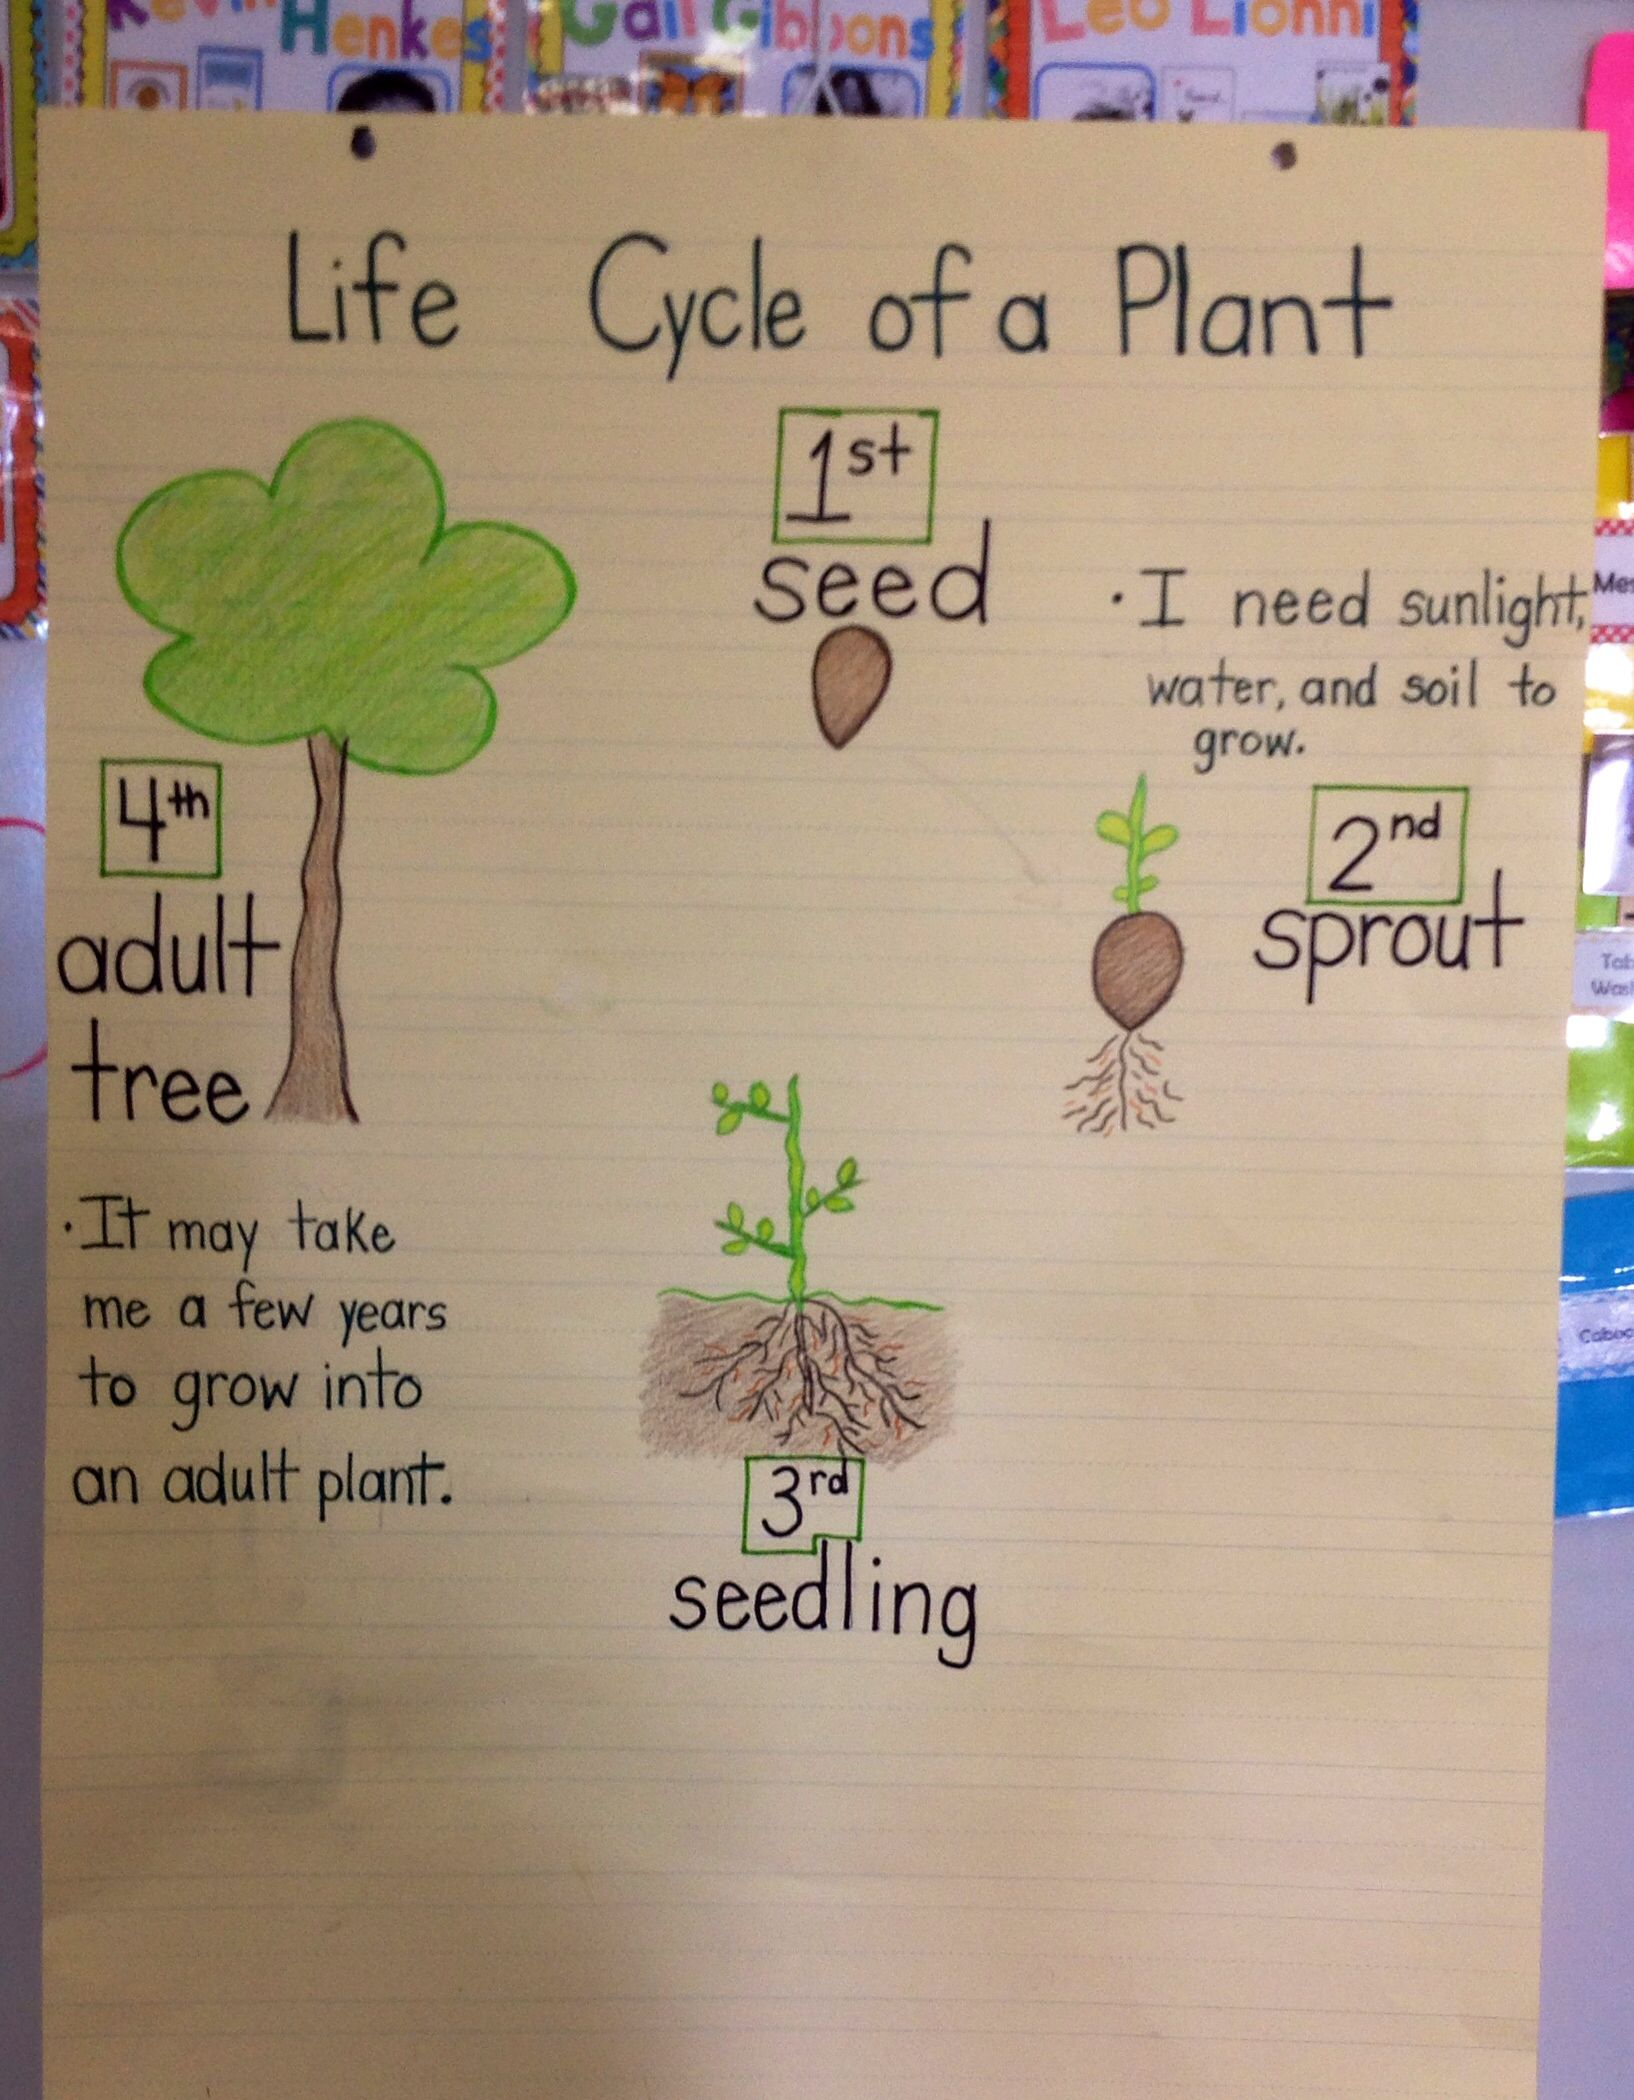 Kevin Henkes
Gail Gibbons
Leo Lionni
Life Cycle of a Plant
1st
seed
· I need sunlight,
water, and soil to
grow.
2nd
sprout
3rd
seedling
4th
adult
tree
· It may take
me a few years
to grow into
an adult plant.